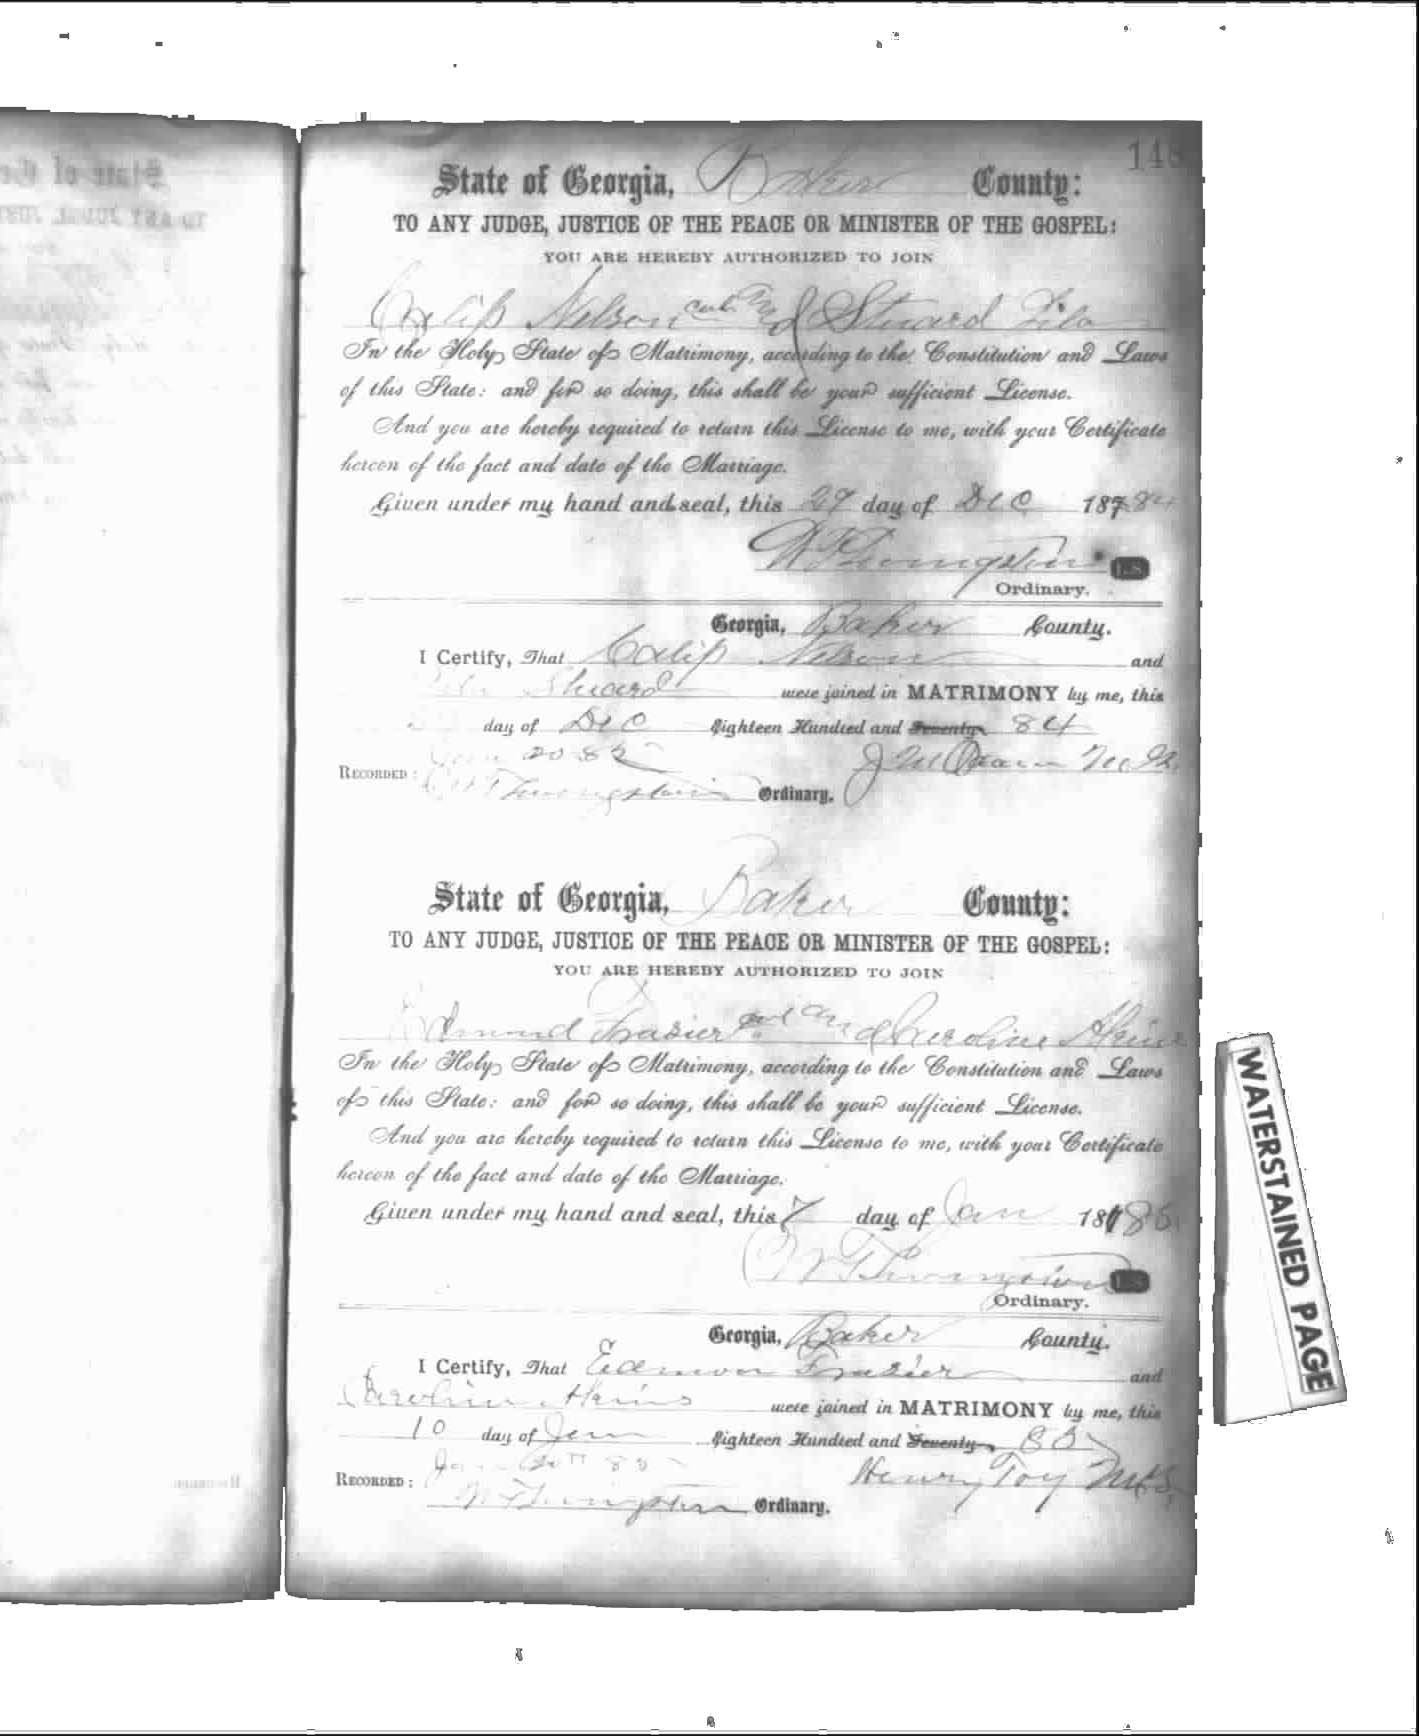 148
State of Georgia, Baker County:
TO ANY JUDGE, JUSTICE OF THE PEACE OR MINISTER OF THE GOSPEL:
YOU ARE HEREBY AUTHORIZED TO JOIN
Calip Nelson and Stuard
In the Holy State of Matrimony, according to the Constitution and Laws
of this State: and for so doing, this shall be your sufficient License.
And you are hereby required to return this License to me, with your Certificate
hereon of the fact and date of the Marriage.
Given under my hand and seal, this 29 day of Dec 187 84
L.S.
Ordinary.
Georgia, Baker County.
I Certify, That Calip Nelson and
were joined in MATRIMONY by me, this
day of Dec Eighteen Hundred and Seventy 84
20 85
RECORDED: Ordinary.
State of Georgia, Baker County:
TO ANY JUDGE, JUSTICE OF THE PEACE OR MINISTER OF THE GOSPEL:
YOU ARE HEREBY AUTHORIZED TO JOIN
Edmund Frazier col and Caroline
In the Holy State of Matrimony, according to the Constitution and Laws
of this State: and for so doing, this shall be your sufficient License.
And you are hereby required to return this License to me, with your Certificate
hereon of the fact and date of the Marriage.
Given under my hand and seal, this 7 day of Jan 18 85
L.S.
Ordinary.
Georgia, Baker County.
I Certify, That Edmon Frazier and
Caroline were joined in MATRIMONY by me, this
10 day of Jan Eighteen Hundred and Seventy 85
Henry Toy M.G.
RECORDED: Ordinary.
WATERSTAINED PAGE